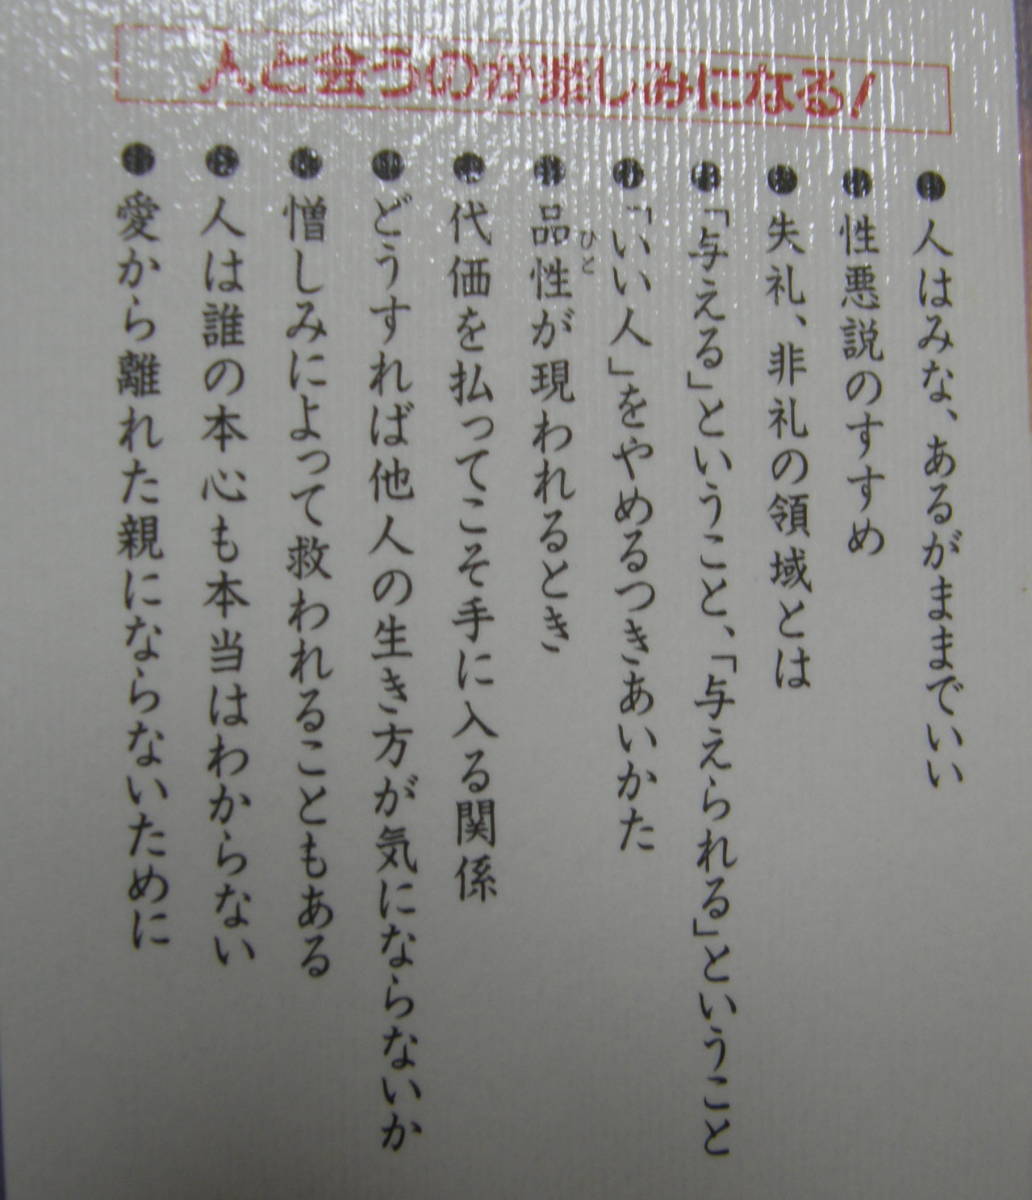 人と会うのが楽しみになる!
●人はみな、あるがままでいい
●性悪説のすすめ
●失礼、非礼の領域とは
●「与える」ということ、「与えられる」ということ
●「いい人」をやめるつきあいかた
●品性が現われるとき
ひと
●代価を払ってこそ手に入る関係
●どうすれば他人の生き方が気にならないか
●憎しみによって救われることもある
●人は誰の本心も本当はわからない
●愛から離れた親にならないために